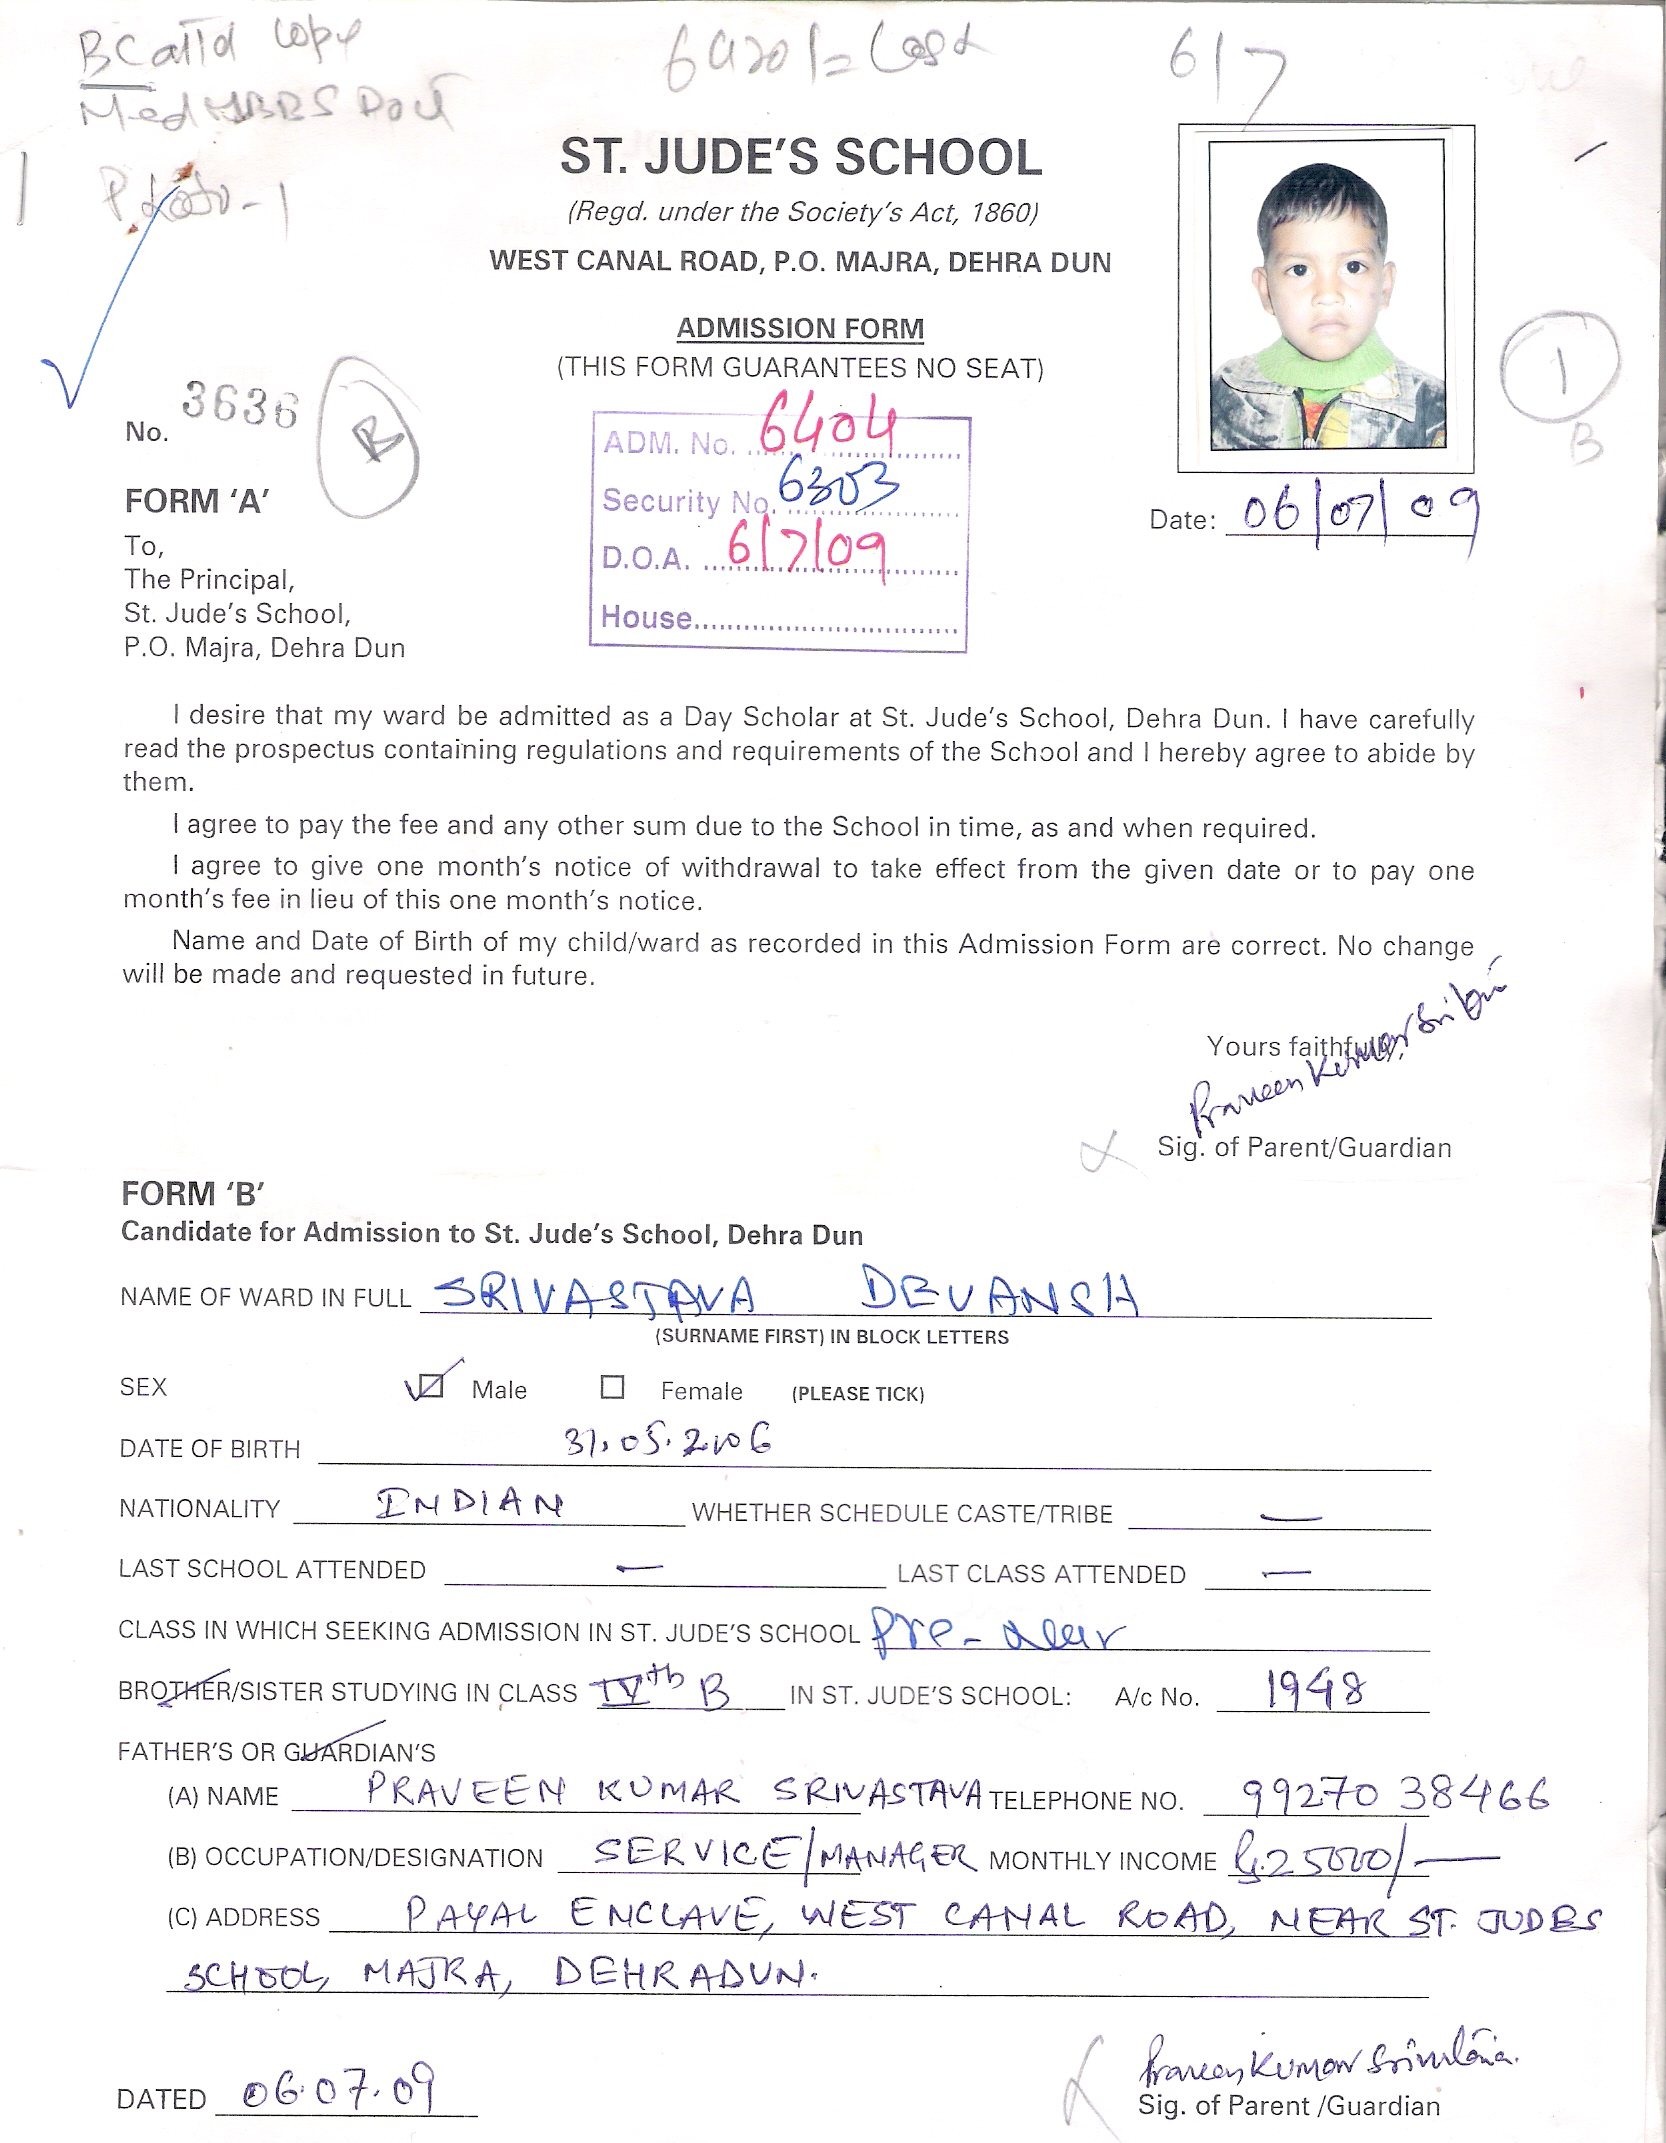 BC attd copy
6920/= Cash
6/7
Med MBBS Doct
Photo-1
ST. JUDE'S SCHOOL
(Regd. under the Society's Act, 1860)
WEST CANAL ROAD, P.O. MAJRA, DEHRA DUN
ADMISSION FORM
(THIS FORM GUARANTEES NO SEAT)
1
B
No. 3636
R
ADM. No. 6404
Security No. 6303
D.O.A. 6/7/09
House
Date: 06/07/09
FORM 'A'
To,
The Principal,
St. Jude's School,
P.O. Majra, Dehra Dun
I desire that my ward be admitted as a Day Scholar at St. Jude's School, Dehra Dun. I have carefully
read the prospectus containing regulations and requirements of the School and I hereby agree to abide by
them.
I agree to pay the fee and any other sum due to the School in time, as and when required.
I agree to give one month's notice of withdrawal to take effect from the given date or to pay one
month's fee in lieu of this one month's notice.
Name and Date of Birth of my child/ward as recorded in this Admission Form are correct. No change
will be made and requested in future.
Yours faithfully,
Praveen Kumar
Sig. of Parent/Guardian
FORM 'B'
Candidate for Admission to St. Jude's School, Dehra Dun
NAME OF WARD IN FULL SRIVASTAVA DEVANSH
(SURNAME FIRST) IN BLOCK LETTERS
SEX Male Female (PLEASE TICK)
DATE OF BIRTH 31.05.2006
NATIONALITY INDIAN WHETHER SCHEDULE CASTE/TRIBE —
LAST SCHOOL ATTENDED — LAST CLASS ATTENDED —
CLASS IN WHICH SEEKING ADMISSION IN ST. JUDE'S SCHOOL Pre-
BROTHER/SISTER STUDYING IN CLASS IVth B IN ST. JUDE'S SCHOOL: A/c No. 1948
FATHER'S OR GUARDIAN'S
(A) NAME PRAVEEN KUMAR SRIVASTAVA TELEPHONE NO. 99270 38466
(B) OCCUPATION/DESIGNATION SERVICE/MANAGER MONTHLY INCOME Rs.25000/-
(C) ADDRESS PAYAL ENCLAVE, WEST CANAL ROAD, NEAR ST. JUDES
SCHOOL, MAJRA, DEHRADUN.
DATED 06.07.09
Praveen Kumar Srivastava
Sig. of Parent /Guardian